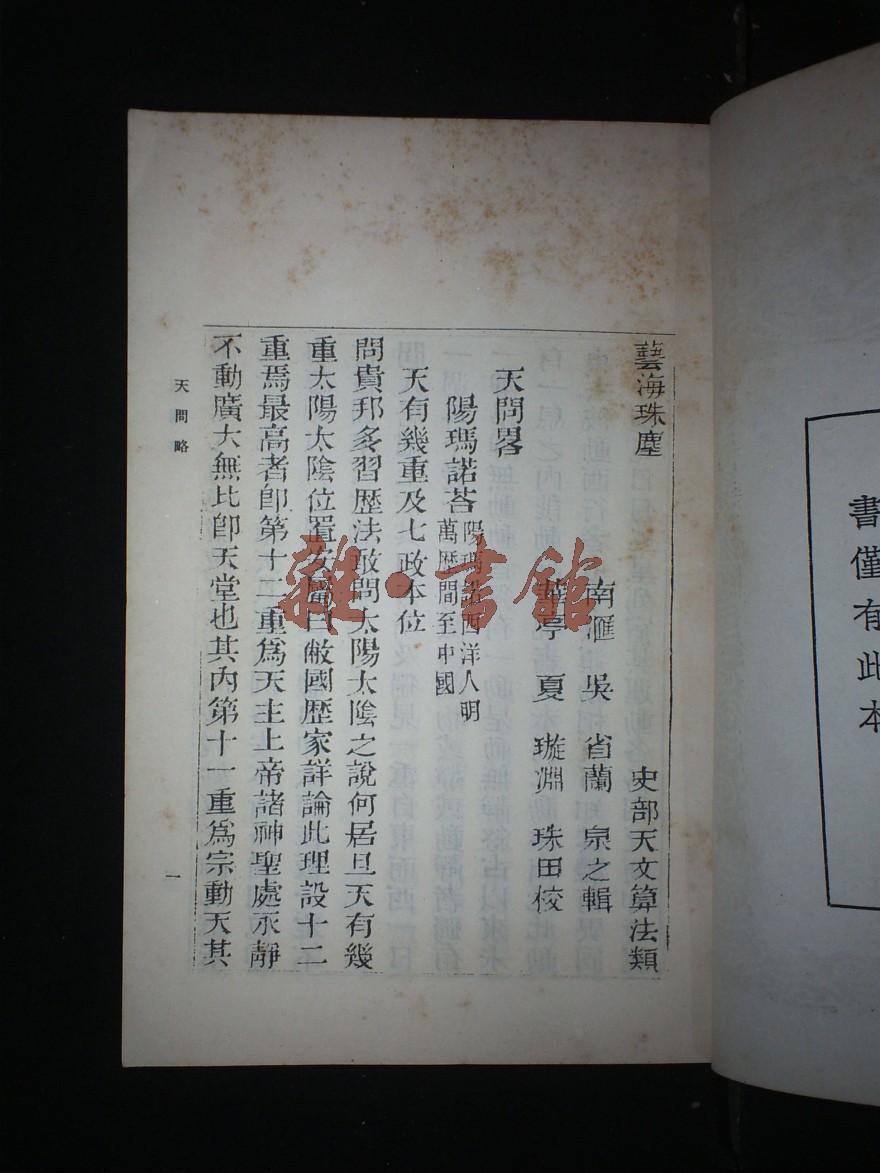 書僅有此本
藝海珠塵 史部天文算法類
南滙 吳省蘭 泉之輯
亭 夏 璇淵 珠田校
天問畧
陽瑪諾荅 陽瑪諾西洋人明
萬歴間至中國
天有幾重及七政本位
問貴邦多習歴法敢問太陽太陰之說何居且天有幾
重太陽太陰位置安屬曰敝國歴家詳論此理設十二
重焉最高者卽第十二重爲天主上帝諸神聖處永靜
不動廣大無比卽天堂也其內第十一重爲宗動天其
天問略
一
雜·書館